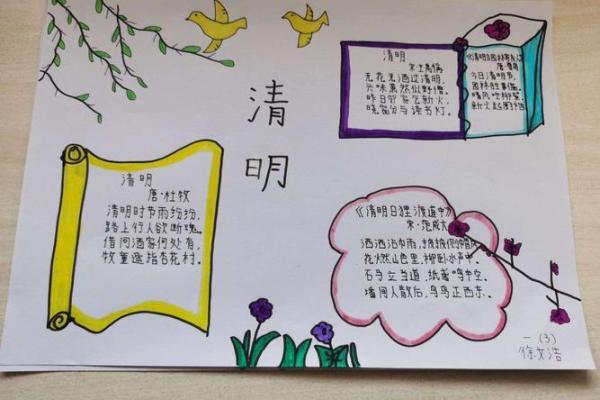 清明
清明
宋·王禹偁
无花无酒过清明,
兴味萧然似野僧。
昨日邻家乞新火,
晓窗分与读书灯。
唐·
今日清明节,
园林胜事偏。
晴风吹柳絮,
新火起厨烟。
清明
唐·杜牧
清明时节雨纷纷,
路上行人欲断魂。
借问酒家何处有,
牧童遥指杏花村。
《清明日狸渡道中》
宋·范成大
洒洒沾巾雨,披披侧帽风。
花燃山色里,柳卧水声中。
石马立当道,纸鸢鸣半空。
墦间人散后,乌鸟正西东。
一(3)
徐文浩